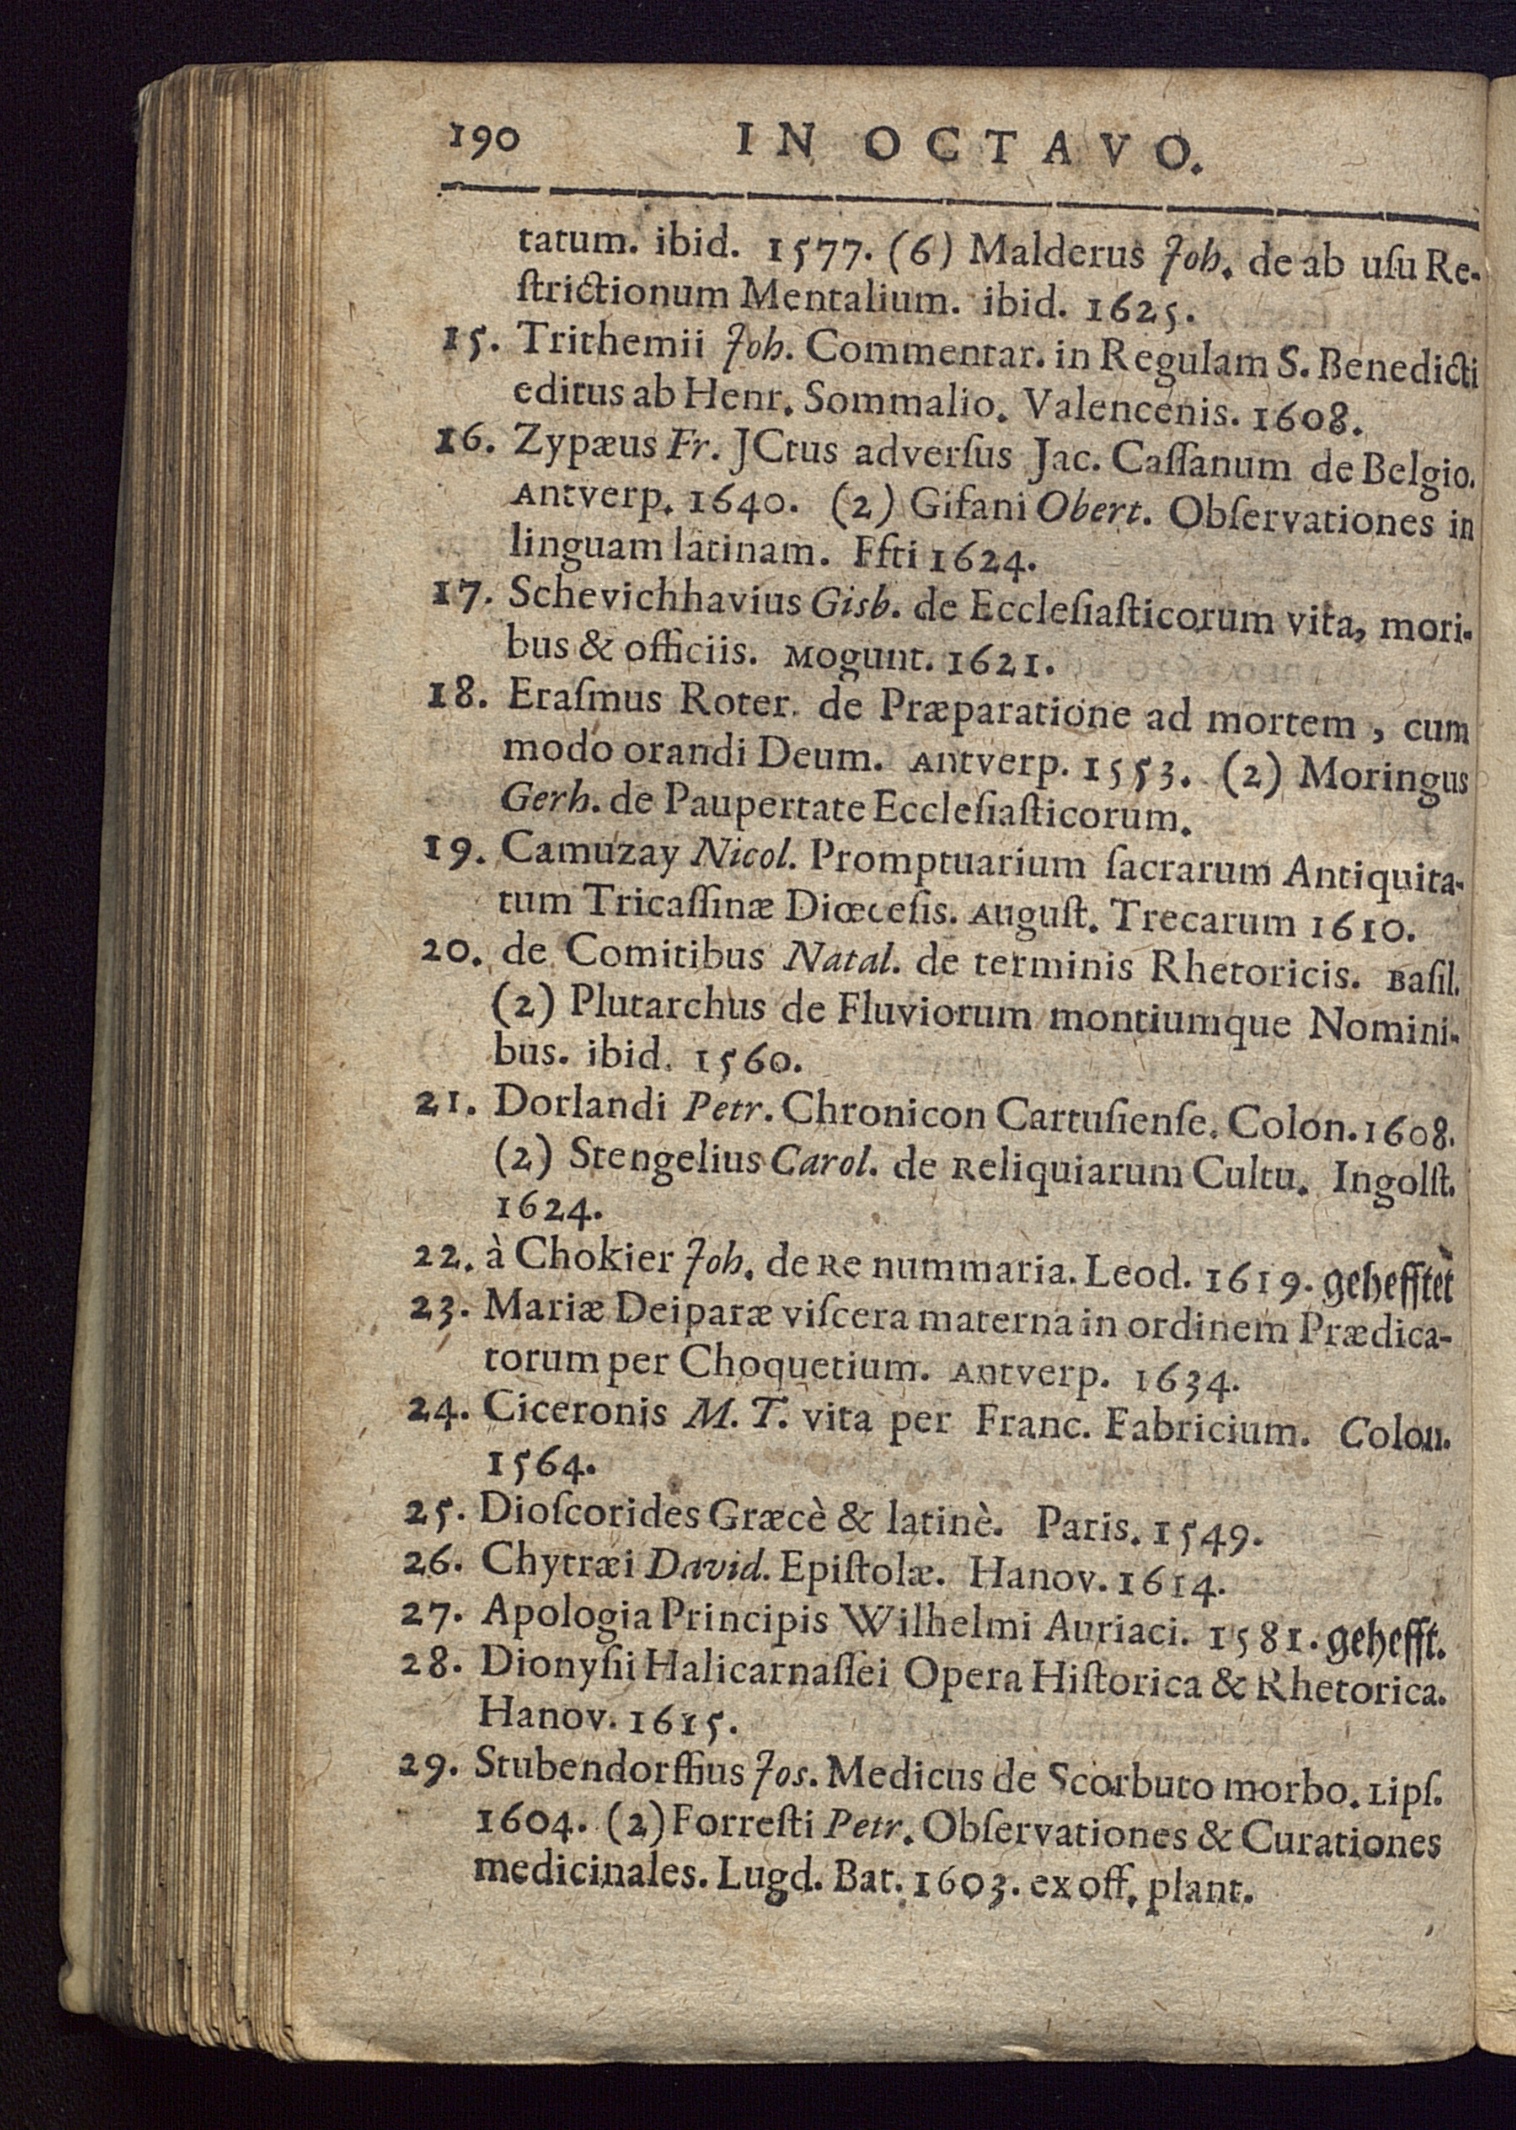 190 IN OCTAVO.
tatum. ibid. 1577. (6) Malderus Joh. de ab uſu Re-
ſtrictionum Mentalium. ibid. 1625.
15. Trithemii Joh. Commentar. in Regulam S. Benedicti
editus ab Henr. Sommalio. Valencenis. 1608.
16. Zypæus Fr. JCtus adverſus Jac. Caſſanum de Belgio.
Antverp. 1640. (2) Gifani Obert. Obſervationes in
linguam latinam. Ffti 1624.
17. Schevichhavius Gisb. de Eccleſiaſticorum vita, mori-
bus & officiis. Mogunt. 1621.
18. Eraſmus Roter. de Præparatione ad mortem, cum
modo orandi Deum. Antverp. 1553. (2) Moringus
Gerh. de Paupertate Eccleſiaſticorum.
19. Camuzay Nicol. Promptuarium ſacrarum Antiquita-
tum Tricaſſinæ Diœceſis. Auguſt. Trecarum 1610.
20. de Comitibus Natal. de terminis Rhetoricis. Baſil.
(2) Plutarchus de Fluviorum montiumque Nomini-
bus. ibid. 1560.
21. Dorlandi Petr. Chronicon Cartuſienſe. Colon. 1608.
(2) Stengelius Carol. de Reliquiarum Cultu. Ingolſt.
1624.
22. à Chokier Joh. de Re nummaria. Leod. 1619. gehefftet
23. Mariæ Deiparæ viſcera materna in ordinem Prædica-
torum per Choquetium. Antverp. 1634.
24. Ciceronis M. T. vita per Franc. Fabricium. Colon.
1564.
25. Dioſcorides Græcè & latinè. Paris. 1549.
26. Chytræi David. Epiſtolæ. Hanov. 1614.
27. Apologia Principis Wilhelmi Auriaci. 1581. gehefft.
28. Dionyſii Halicarnaſſei Opera Hiſtorica & Rhetorica.
Hanov. 1615.
29. Stubendorffius Jos. Medicus de Scorbuto morbo. Lipſ.
1604. (2) Forreſti Petr. Obſervationes & Curationes
medicinales. Lugd. Bat. 1603. ex off. plant.